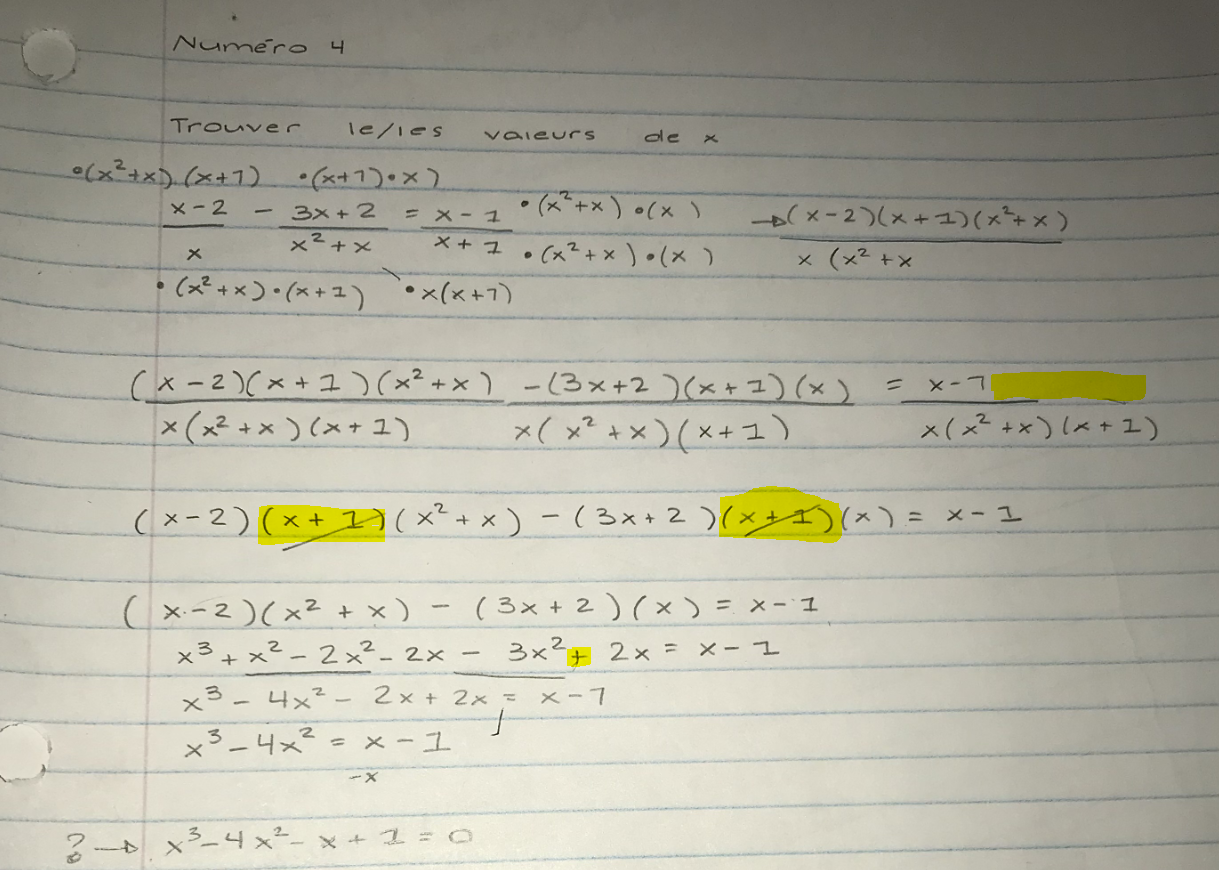 Numéro 4
Trouver le/les valeurs de x
•(x²+x)•(x+1) •(x+1)•x)
x-2 / x - 3x+2 / x²+x = x-1 / x+1 •(x²+x)•(x) / •(x²+x)•(x) → (x-2)(x+1)(x²+x) / x(x²+x
•(x²+x)•(x+1) •x(x+1)
(x-2)(x+1)(x²+x) / x(x²+x)(x+1) -(3x+2)(x+1)(x) / x(x²+x)(x+1) = x-1 / x(x²+x)(x+1)
(x-2)(x+1)(x²+x) - (3x+2)(x+1)(x) = x-1
(x-2)(x²+x) - (3x+2)(x) = x-1
x³+x²-2x²-2x-3x²+2x = x-1
x³-4x²-2x+2x = x-1
x³-4x² = x-1
-x
? → x³-4x²-x+1=0